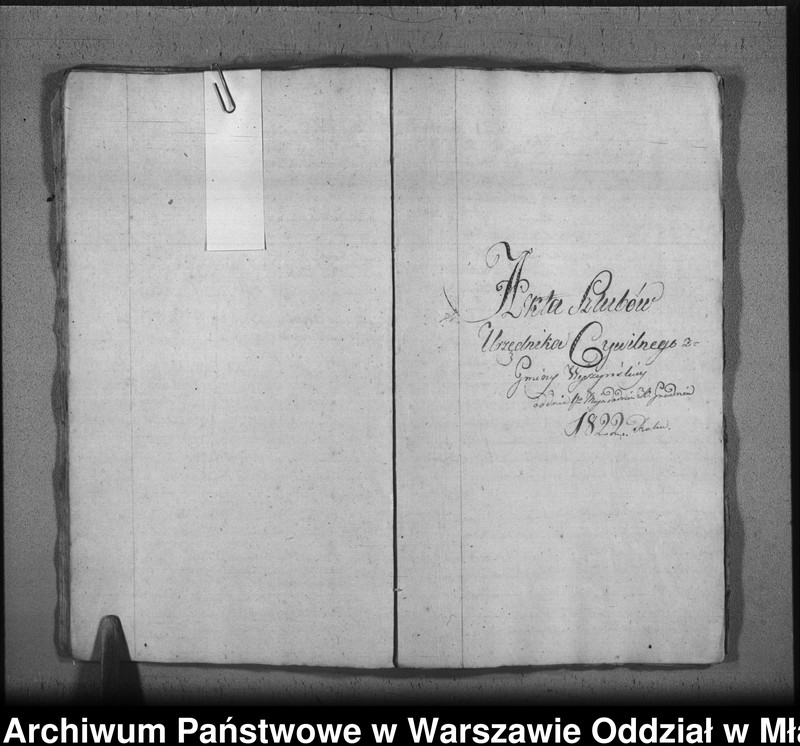 Akta Szlubów
Urzędnika Cywilnego z-
Gminy
od dnia 1go Maja do dnia 31. Grudnia
1822. Roku.
Archiwum Państwowe w Warszawie Oddział w Mła